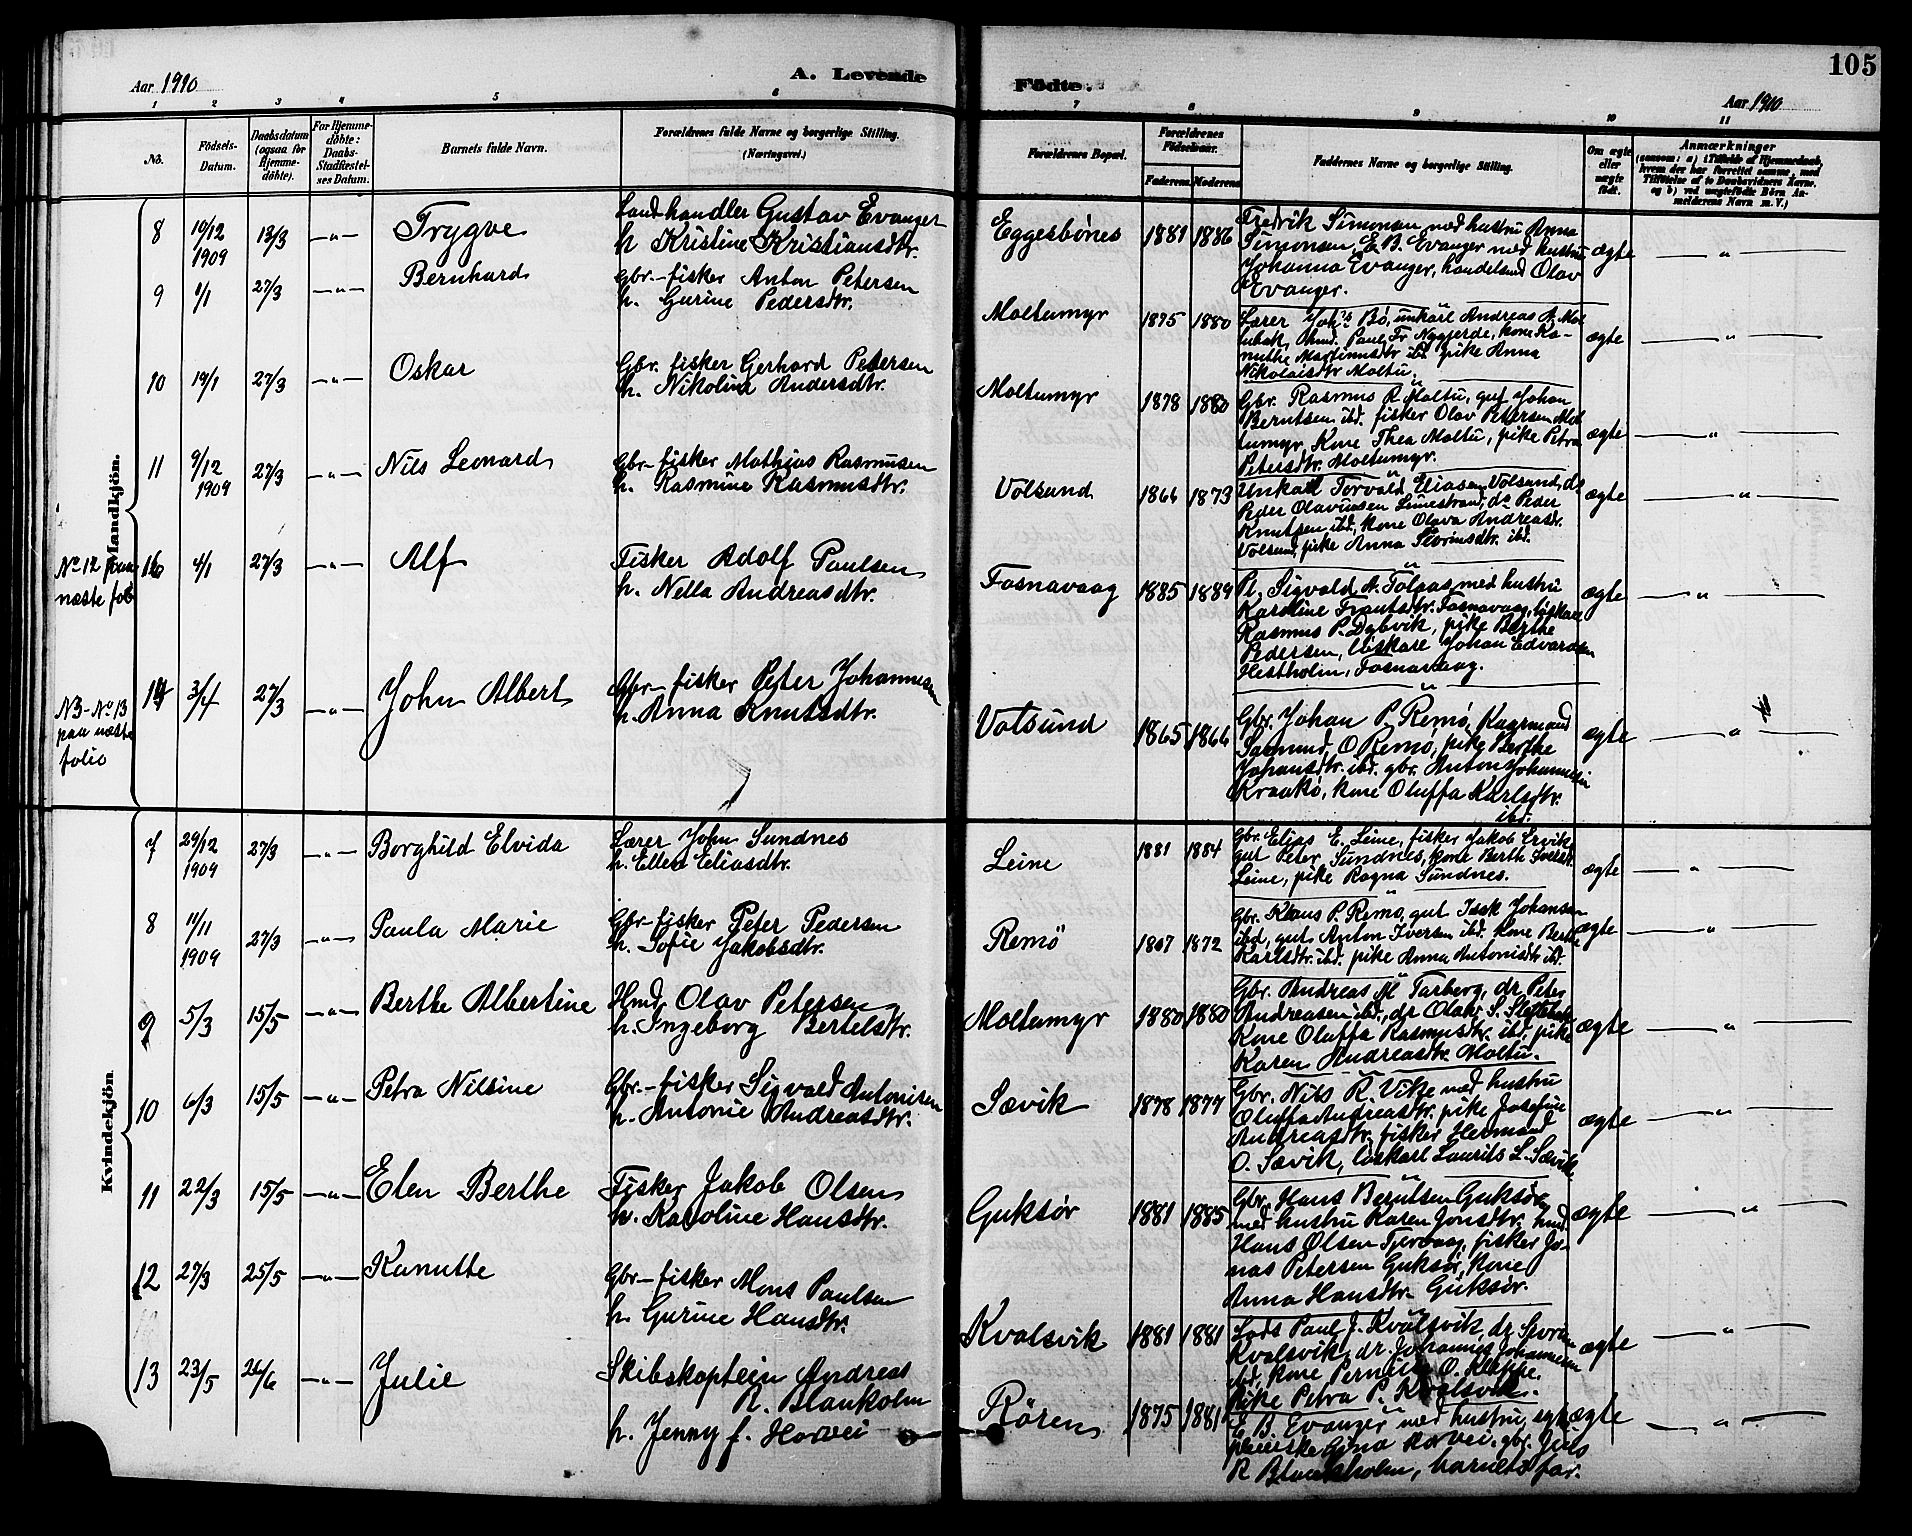 Aar 1910
A. Levende
Födte.
105
Aar 1910
1 2 3 4 5 6 7 8 9 10 11
No.
Födsels-Datum.
Daabsdatum (ogsaa for Hjemme-döbte).
For Hjemme-döbte: Daabs-Stadfæstel-ses Datum.
Barnets fulde Navn.
Forældrenes fulde Navne og borgerlige Stilling. (Næringsvei.)
Forældrenes Bopæl.
Forældrenes Födselsaar.
Faderens. Moderens.
Faddernes Navne og borgerlige Stilling.
Om ægte eller uægte födt.
Anmærkninger
(saasom: a) i Tilfælde af Hjemmedaab, hvem der har forrettet samme, med Tilföielse af to Daabsvidners Navne, og b) ved uægtefödte Börn An-melderens Navn m. V.)
Mandkjön.
8 10/12 1909 13/3 -"- Trygve
Landhandler Gustav Evanger
h Kristine Kristiansdtr.
Eggesbönes 1881 1886
Fredrik Simonsen med hustru Anna
Simonsen, E. B. Evanger med hustru
Johanna Evanger, handelsmd Olav
Evanger.
ægte "
9 1/1 27/3 -"- Bernhard
Gbr-fisker Anton Petersen
h. Gurine Pedersdtr.
Moltumyr 1875 1880
Lærer Johs Bö, unkarl Andreas A. Mol
Paul Fr Nygjerde, kone Ka-
nuthe Martinusdtr ibd. pike Anna
Nikolaisdtr Moltu.
ægte "
10 19/1 27/3 -"- Oskar
Gbr. fisker Gerhard Petersen
h. Nikolina Andersdtr.
Moltumyr 1878 1880
Gbr. Rasmus R. Moltu, gut Johan
Berntsen ibd. fisker Olav Petersen Mol
tumyr, Kone Thea Moltu, pike Petra
Petersdtr. Moltumyr.
ægte "
11 9/12 1909 27/3 -"- Nils Leonard
Gbr-fisker Mathias Rasmusen
h. Rasmine Rasmusdtr.
Volsund 1864 1873
Unkarl Torvald Eliasen Volsund, do
Peder Olavinsen Leinestrand, do Peder
Knutsen ibd, kone Olava Andreasdr.
Volsund, pike Anna ibd.
ægte "
No 12 paa
næste fol.
16 4/1 27/3 -"- Alf
Fisker Adolf Paulsen
h. Nella Andreasdtr.
Fosnavaag 1885 1889
Pl. Sigvald A. Tolaas med hustru
Karoline Fosnavaag, löskarl
Rasmus P. Dybvik, pike Berthe
Pedersen, löskarl Johan Edvardsen
Hestholm, Fosnavaag.
ægte "
NB-No 13
paa næste
folio
14 3/4 27/3 -"- John Albert
Gbr-fisker Peter Johannesen
h. Anna Knutsdtr.
Volsund 1865 1866
Gbr. Johan P. Remö, Kaarmand
O Remö, pike Berthe
Johansdtr. ibd. gbr. Anton Johannesen
Kraakö, kone Oluffa Karlsdtr.
ibd.
ægte "
Kvindekjön.
7 29/12 1909 27/3 -"- Borghild Elvida
Lærer John Sundnes
h. Ellen Eliasdtr.
Leine 1881 1884
Gbr. Elias E. Leine, fisker Jakob Ervik,
gut Peter Sundnes, kone Berthe
Leine, pike Ragna Sundnes.
ægte "
8 11/11 1909 27/3 -"- Paula Marie
Gbr-fisker Peter Pedersen
h. Sofie Jakobsdtr.
Remö 1867 1872
Gbr. Klaus P. Remö, gut Isak Johansen
ibd, gut Anton Iversen ibd. kone Berthe
Karlsdtr. ibd. pike Anna Antonisdtr ibd.
ægte "
9 5/3 15/5 -"- Berthe Albertine
Hmd. Olav Petersen
h. Ingeborg Bertelsdtr.
Moltumyr 1880 1880
Gbr. Andreas M Tarberg, dr. Peter
Andreasen ibd., dr Olak. S.
Kone Oluffa Rasmusdtr. ibd. pike
Karen Andreasdtr. Moltu.
ægte "
10 6/3 15/5 -"- Petra Nilsine
Gbr.-fisker Sigvald Antonisen
h. Antonie Andreasdtr.
Sævik 1878 1877
Gbr. Nils R. Vikje med hustru
Oluffa Andreasdtr. pike Josefine
Andreasdtr. fisker Hermand
O. Sævik, löskarl Laurits L. Sævik
ægte "
11 22/3 15/5 -"- Elen Berthe
Fisker Jakob Olsen
h. Karoline Hansdtr.
Guksör 1881 1885
Gbr. Hans Berntsen Guksör
med hustru Karen Jonsdtr. hmd.
Hans Olsen fisker Jo-
nas Petersen Guksör, kone
Anna Hansdtr. Guksör.
ægte "
12 27/3 25/5 -"- Kanutte
Gbr-fisker Mons Paulsen
h. Gurine Hansdtr.
Kvalsvik 1881 1881
Lods Paul J. Kvalsvik, dr
Kvalsvik, dr. Johannes Johannesen
ibd, kone Pernille O. Kleppe.
Pike Petra P. Kvalsvik.
ægte "
13 23/5 26/6 -"- Julie
Skibskaptein Andreas
R. Blankholm
h. Jenny f. Horvei
Rören 1875 1881
E B. Evanger med hustru, syke
pleierske Gina Horvei, gbr. Jens
R Blankholm, barnets far.
ægte "